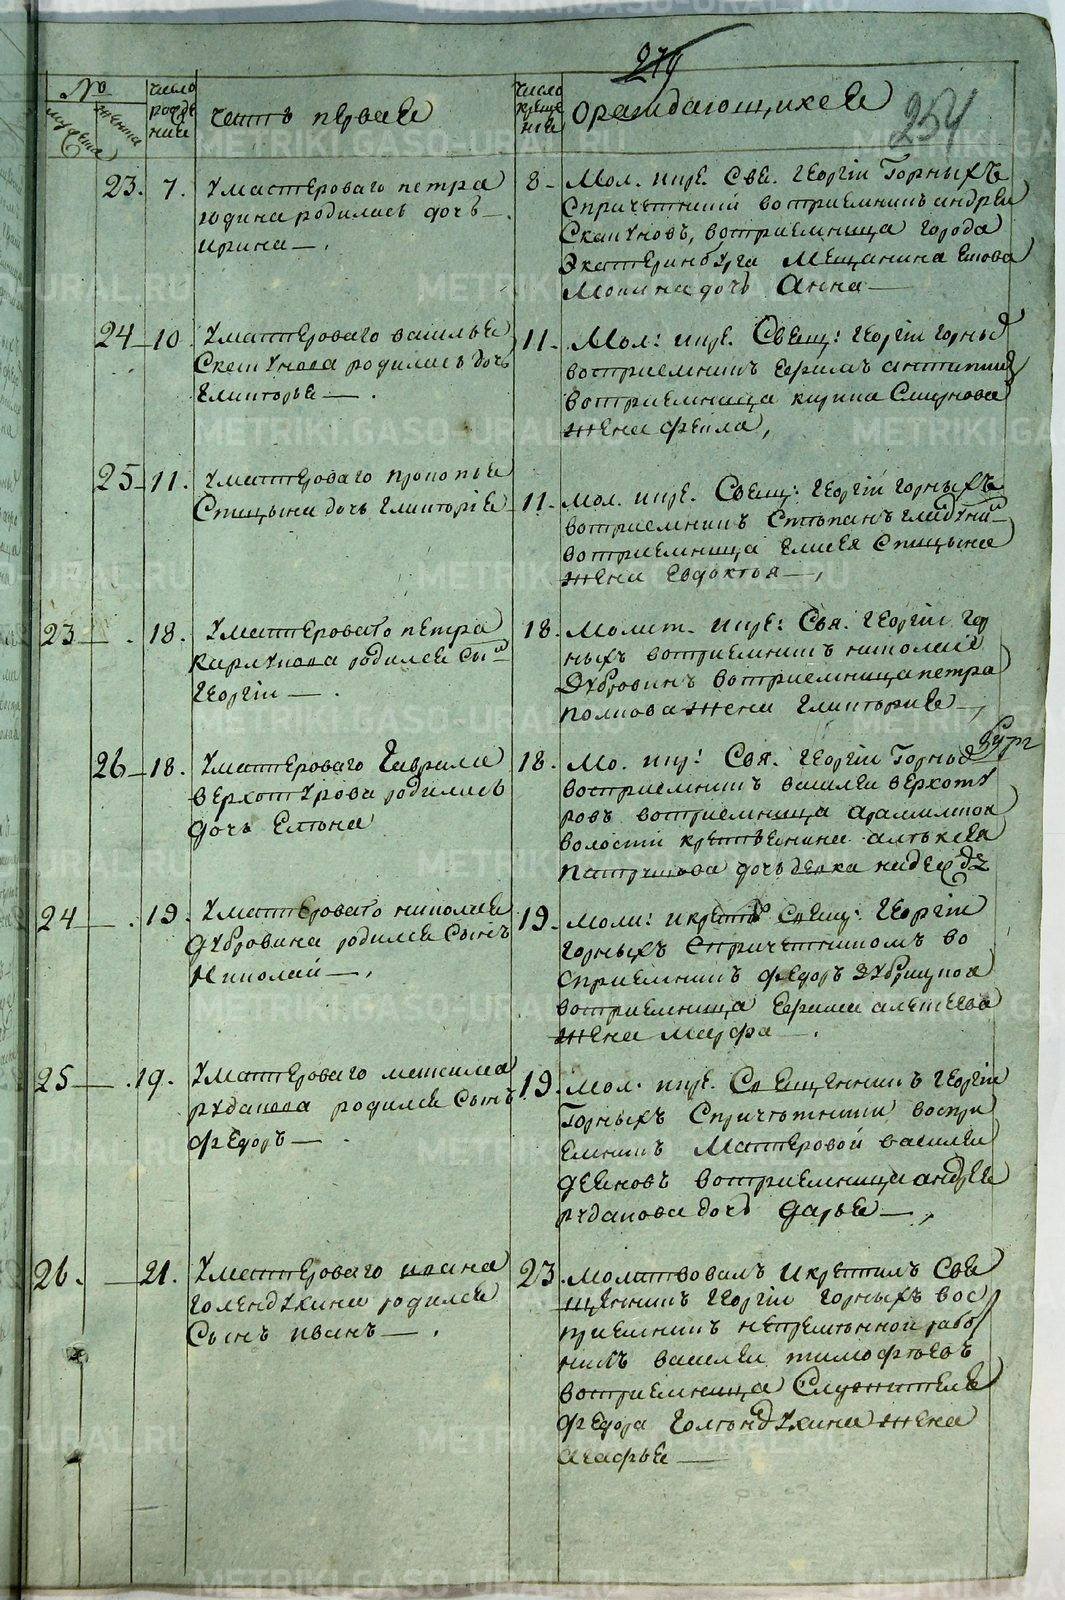 279
254
№
мужеска
женска
число рожде ние
Часть первая
число креще ние
О раждающихся
23. 7. У мастероваго петра
юдина родилась дочь
ирина
8 Мол. икре. Свя. Георгiй Горныхъ
Спричетники восприемникъ андрей
Скапуновъ, восприемница города
Экатеринбурга Мещанина
дочь Анна
24 10 У мастероваго василья
Скапунова родилась дочь
Гликорья
11. Мол: икре. Свящ: Георгiй Горны
восприемникъ
восприемница кирила Смирнова
жена фекла,
25 11. У мастероваго прокопья
Спицына дочь Гликерiя
11. Мол. икре. Свящ: Георгiй Горныхъ
восприемникъ Стѣпанъ
восприемница Елисея Спицына
жена Евдокѣя
23 18. У мастероваго петра
Карлукова родился сы
Георгiй
18. Молит. икре: Свя. Георгiй Гор
ныхъ восприемникъ николай
Дубровинъ восприемница петра
полкова жена Гликерия
26 18. У мастероваго Гаврила
верхотурова родилась
дочь Елѣна
18. Мо. икр: Свя. Георгiй Горны
восприемникъ василей верхоту
ровъ восприемница арамилской
волости крѣстьянина алѣксея
патрушова дочь девка надеждѣ
24 19. У мастероваго николая
дубровина родился Сынъ
Николай
19. Моли: икрести Свящ: Георгiй
Горныхъ Спричетникомъ во
сприемникъ федоръ
восприемница
жена Марфа
25 19. У мастероваго максима
рудакова родился Сынъ
федоръ
19. Мол. икре. Священникъ Георгiй
Горныхъ Спричѣтники воспри
емникъ Мастеровой василей
деевновъ восприемница андрея
рудакова дочь дарья
26. 21. У мастероваго ивана
Голендухина родился
Сынъ иванъ
23. Молитвовалъ икрестилъ Свя
щенникъ Георгiй Горныхъ вос
приемникъ непремѣнной рабо
никъ василей тимофѣевъ
восприемница Служителя
федора Голѣндухина жена
агафья